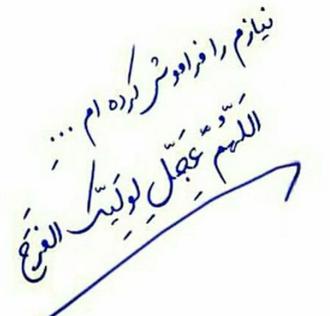 نیازم را فراموش کرده ام ...
اللّهُمَّ عَجِّلْ لِوَلِیِّکَ الفَرَجَ